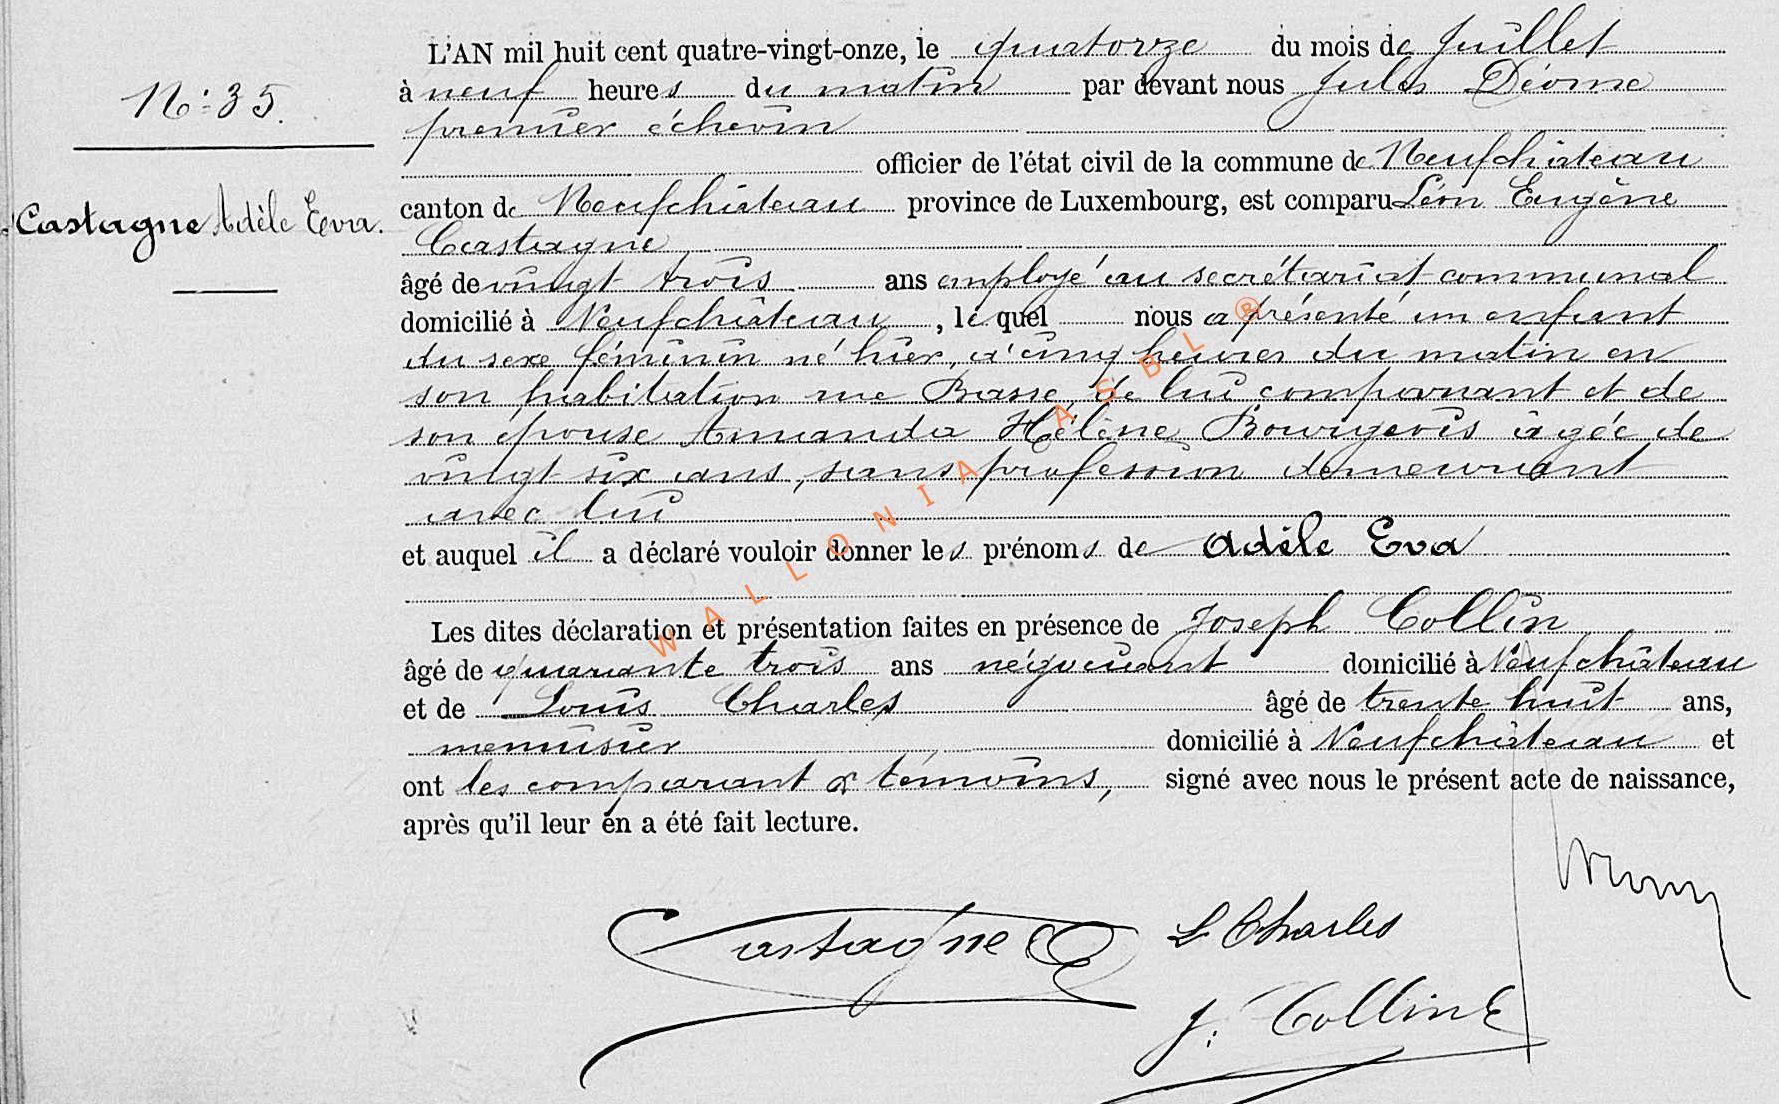 N: 35.
Castagne Adèle Eva.
L'AN mil huit cent quatre-vingt-onze, le quatorze du mois de Juillet
à neuf heures du matin par devant nous Jules Déome
premier échevin
officier de l'état civil de la commune de Neufchâteau
canton de Neufchâteau province de Luxembourg, est comparu Léon Eugène
Castagne
âgé de vingt trois ans employé au secrétariat communal
domicilié à Neufchâteau, le quel nous a présenté un enfant
du sexe féminin né hier, à cinq heures du matin en
son habitation rue Basse, de lui comparant et de
son épouse Amanda Hélène Bourgeois âgée de
vingt six ans, sans profession demeurant
avec lui
et auquel il a déclaré vouloir donner les prénoms de Adèle Eva
Les dites déclaration et présentation faites en présence de Joseph Collin
âgé de quarante trois ans négociant domicilié à Neufchâteau
et de Louis Charles âgé de trente huit ans,
menuisier domicilié à Neufchâteau et
ont les comparant & témoins, signé avec nous le présent acte de naissance,
après qu'il leur en a été fait lecture.
Castagne E
L Charles
J. Collin
WALLONIA ASBL ®